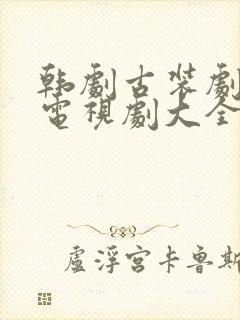 韩劇古装劇
電視劇大全
盧浮宮卡鲁斯